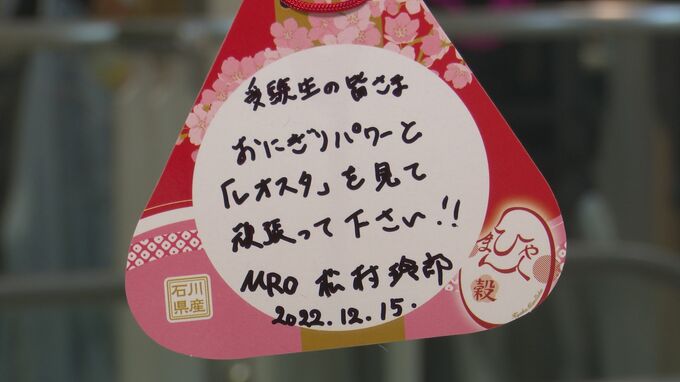 受験生の皆さま
おにぎりパワーと
「レオスタ」を見て
頑張って下さい!!
MRO 松村玲郎
2022.12.15.
石川
県産
ひゃく
まん
穀